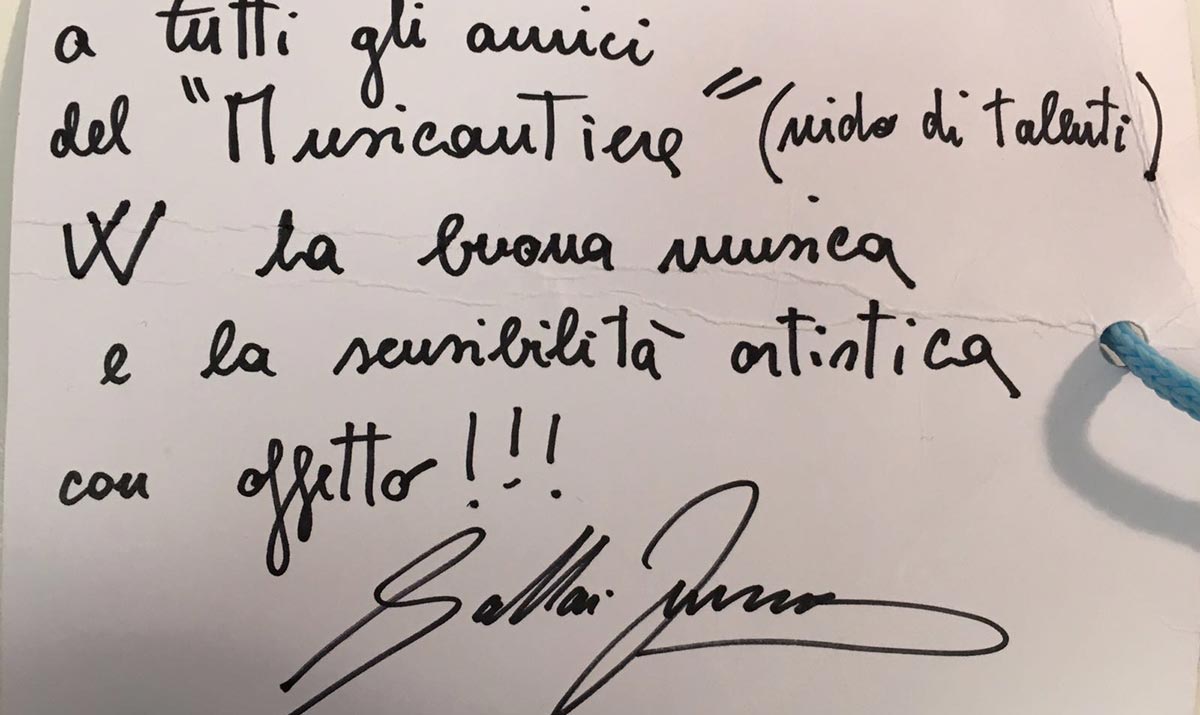 a tutti gli amici
del "Musicantiere" (nido di talenti)
W la buona musica
e la sensibilità artistica
con affetto!!!